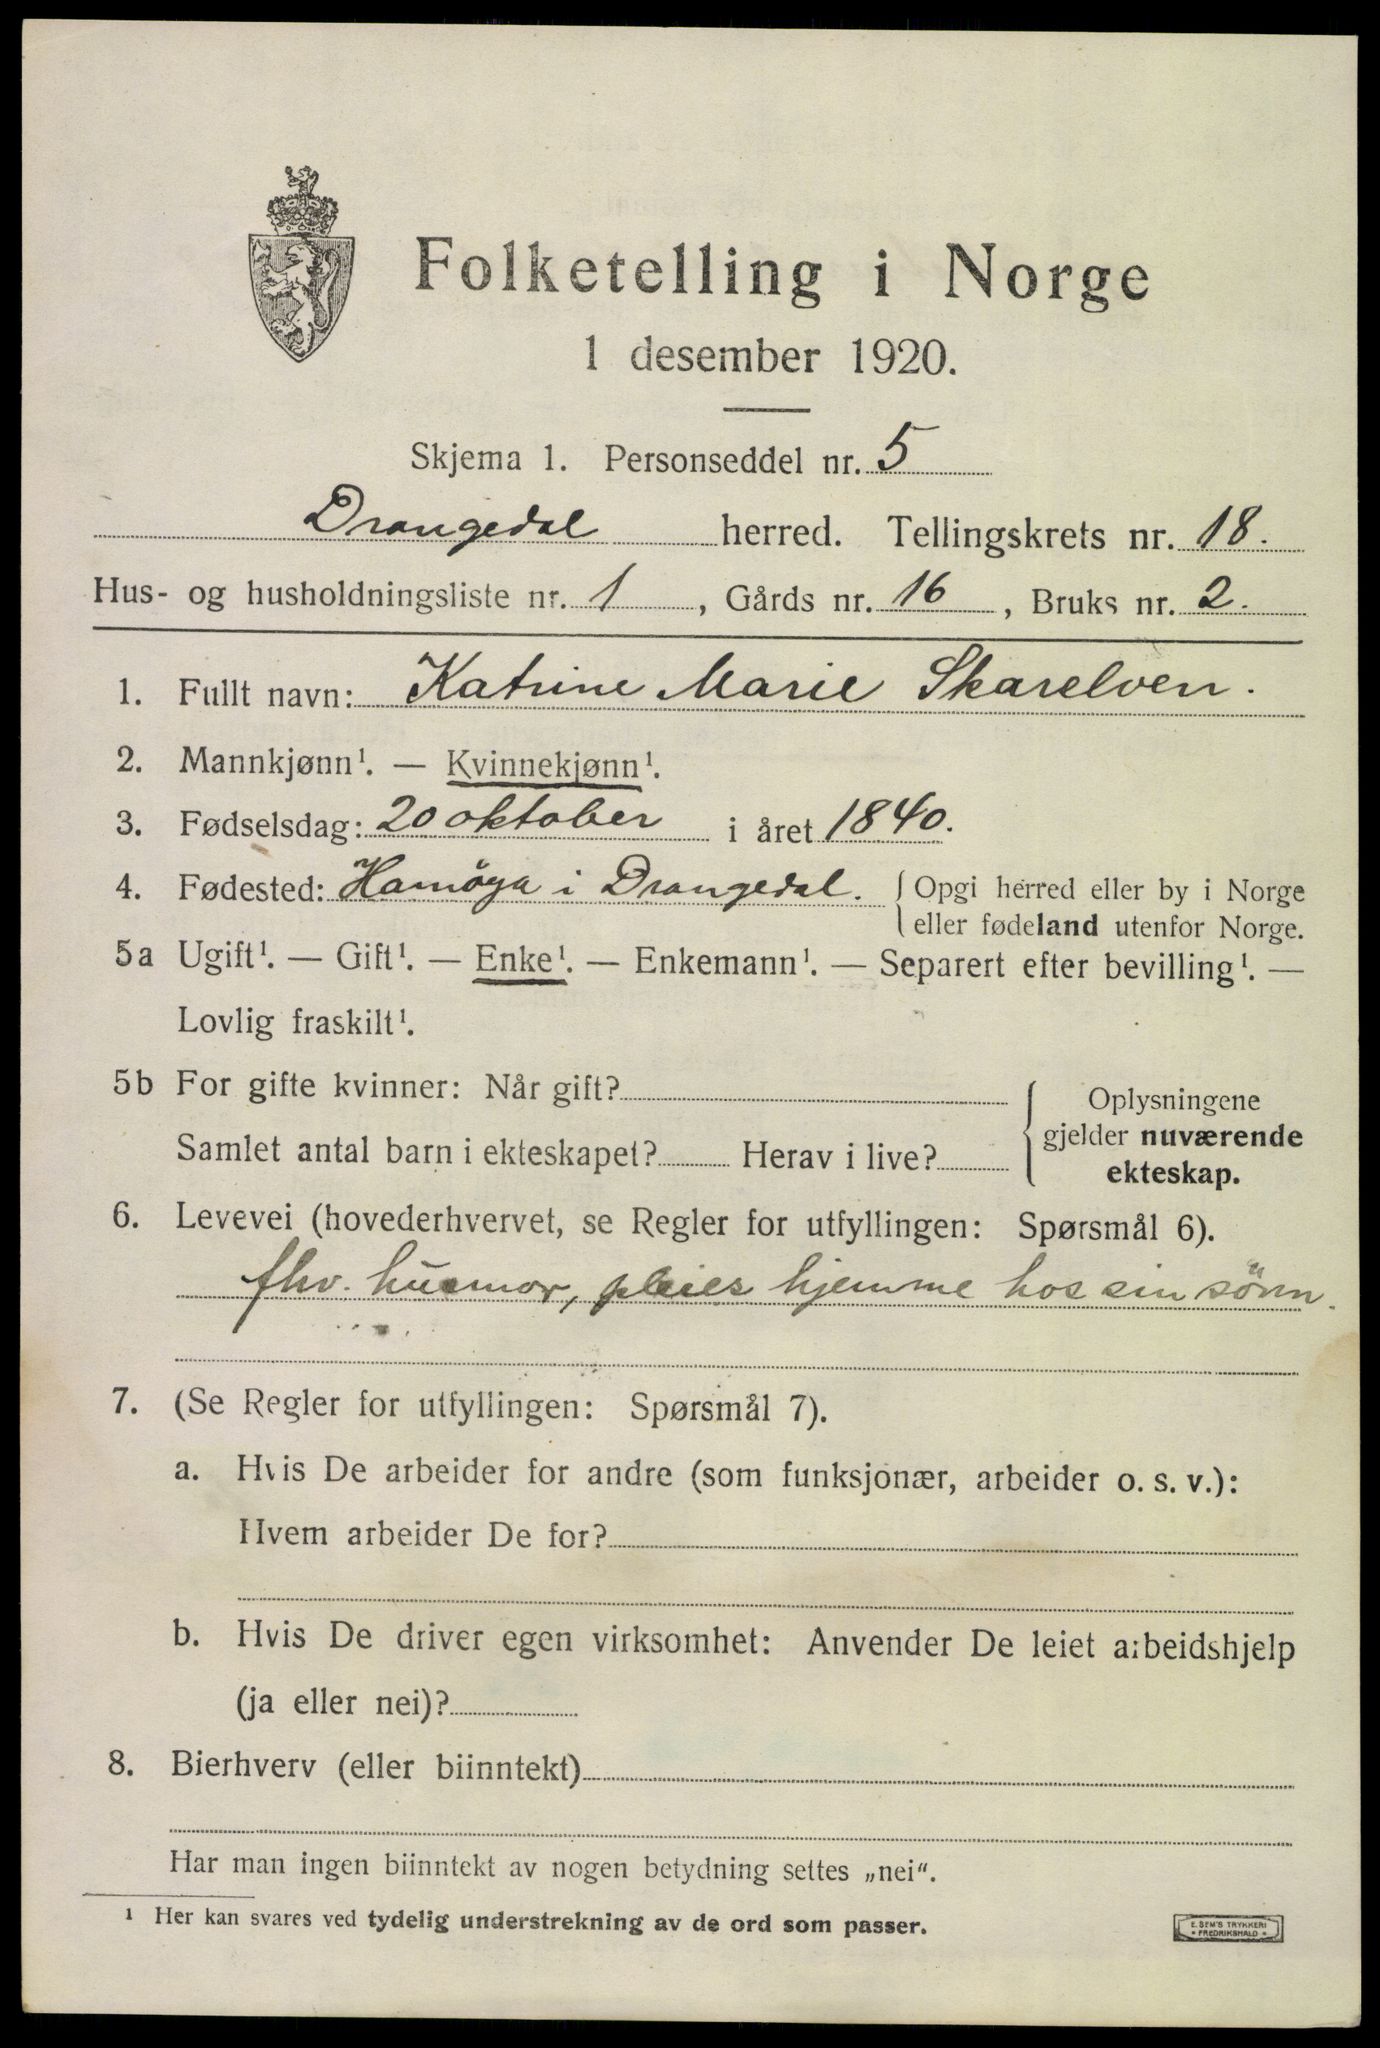 Folketelling i Norge
1 desember 1920.
Skjema 1. Personseddel nr. 5
Drangedal herred. Tellingskrets nr. 18.
Hus- og husholdningsliste nr. 1, Gårds nr. 16, Bruks nr. 2.
1. Fullt navn: Katrine Marie Skarelven.
2. Mannkjønn¹. — Kvinnekjønn¹.
3. Fødselsdag: 20 oktober i året 1840.
4. Fødested: Hamöya i Drangedal. { Opgi herred eller by i Norge
eller fødeland utenfor Norge.
5a Ugift¹. — Gift¹. — Enke¹. — Enkemann¹. — Separert efter bevilling¹. —
Lovlig fraskilt¹.
5b For gifte kvinner: Når gift?
Samlet antal barn i ekteskapet? Herav i live?
Oplysningene
gjelder nuværende
ekteskap.
6. Levevei (hovederhvervet, se Regler for utfyllingen: Spørsmål 6).
fhv. husmor, pleies hjemme hos sin sönn.
7. (Se Regler for utfyllingen: Spørsmål 7).
a. Hvis De arbeider for andre (som funksjonær, arbeider o. s. v.):
Hvem arbeider De for?
b. Hvis De driver egen virksomhet: Anvender De leiet arbeidshjelp
(ja eller nei)?
8. Bierhverv (eller biinntekt)
Har man ingen biinntekt av nogen betydning settes „nei“.
¹ Her kan svares ved tydelig understrekning av de ord som passer.
E. SEM'S TRYKKERI
* FREDRIKSHALD *